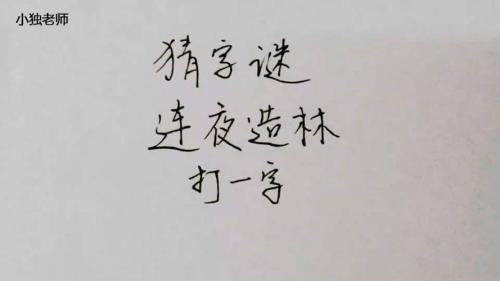 小独老师
猜字谜
连夜造林
打一字